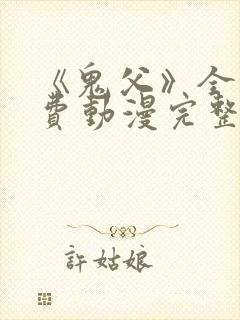 《鬼父》全
費動漫完整
許姑娘